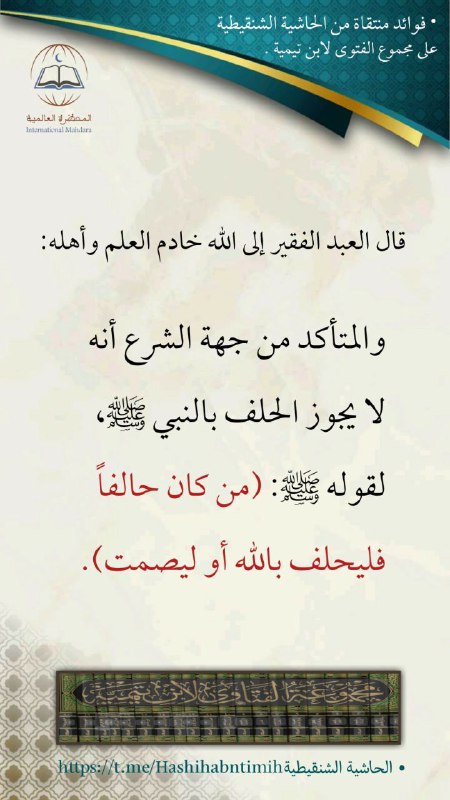 • فوائد منتقاة من الحاشية الشنقيطية
على مجموع الفتوى لابن تيمية .
المحضرة العالمية
International Mahdara
قال العبد الفقير إلى الله خادم العلم وأهله:
والمتأكد من جهة الشرع أنه
لا يجوز الحلف بالنبي ﷺ،
لقوله ﷺ: (من كان حالفاً
فليحلف بالله أو ليصمت).
مجموعة الفتاوى لابن تيمية
• الحاشية الشنقيطية https://t.me/Hashihabntimih